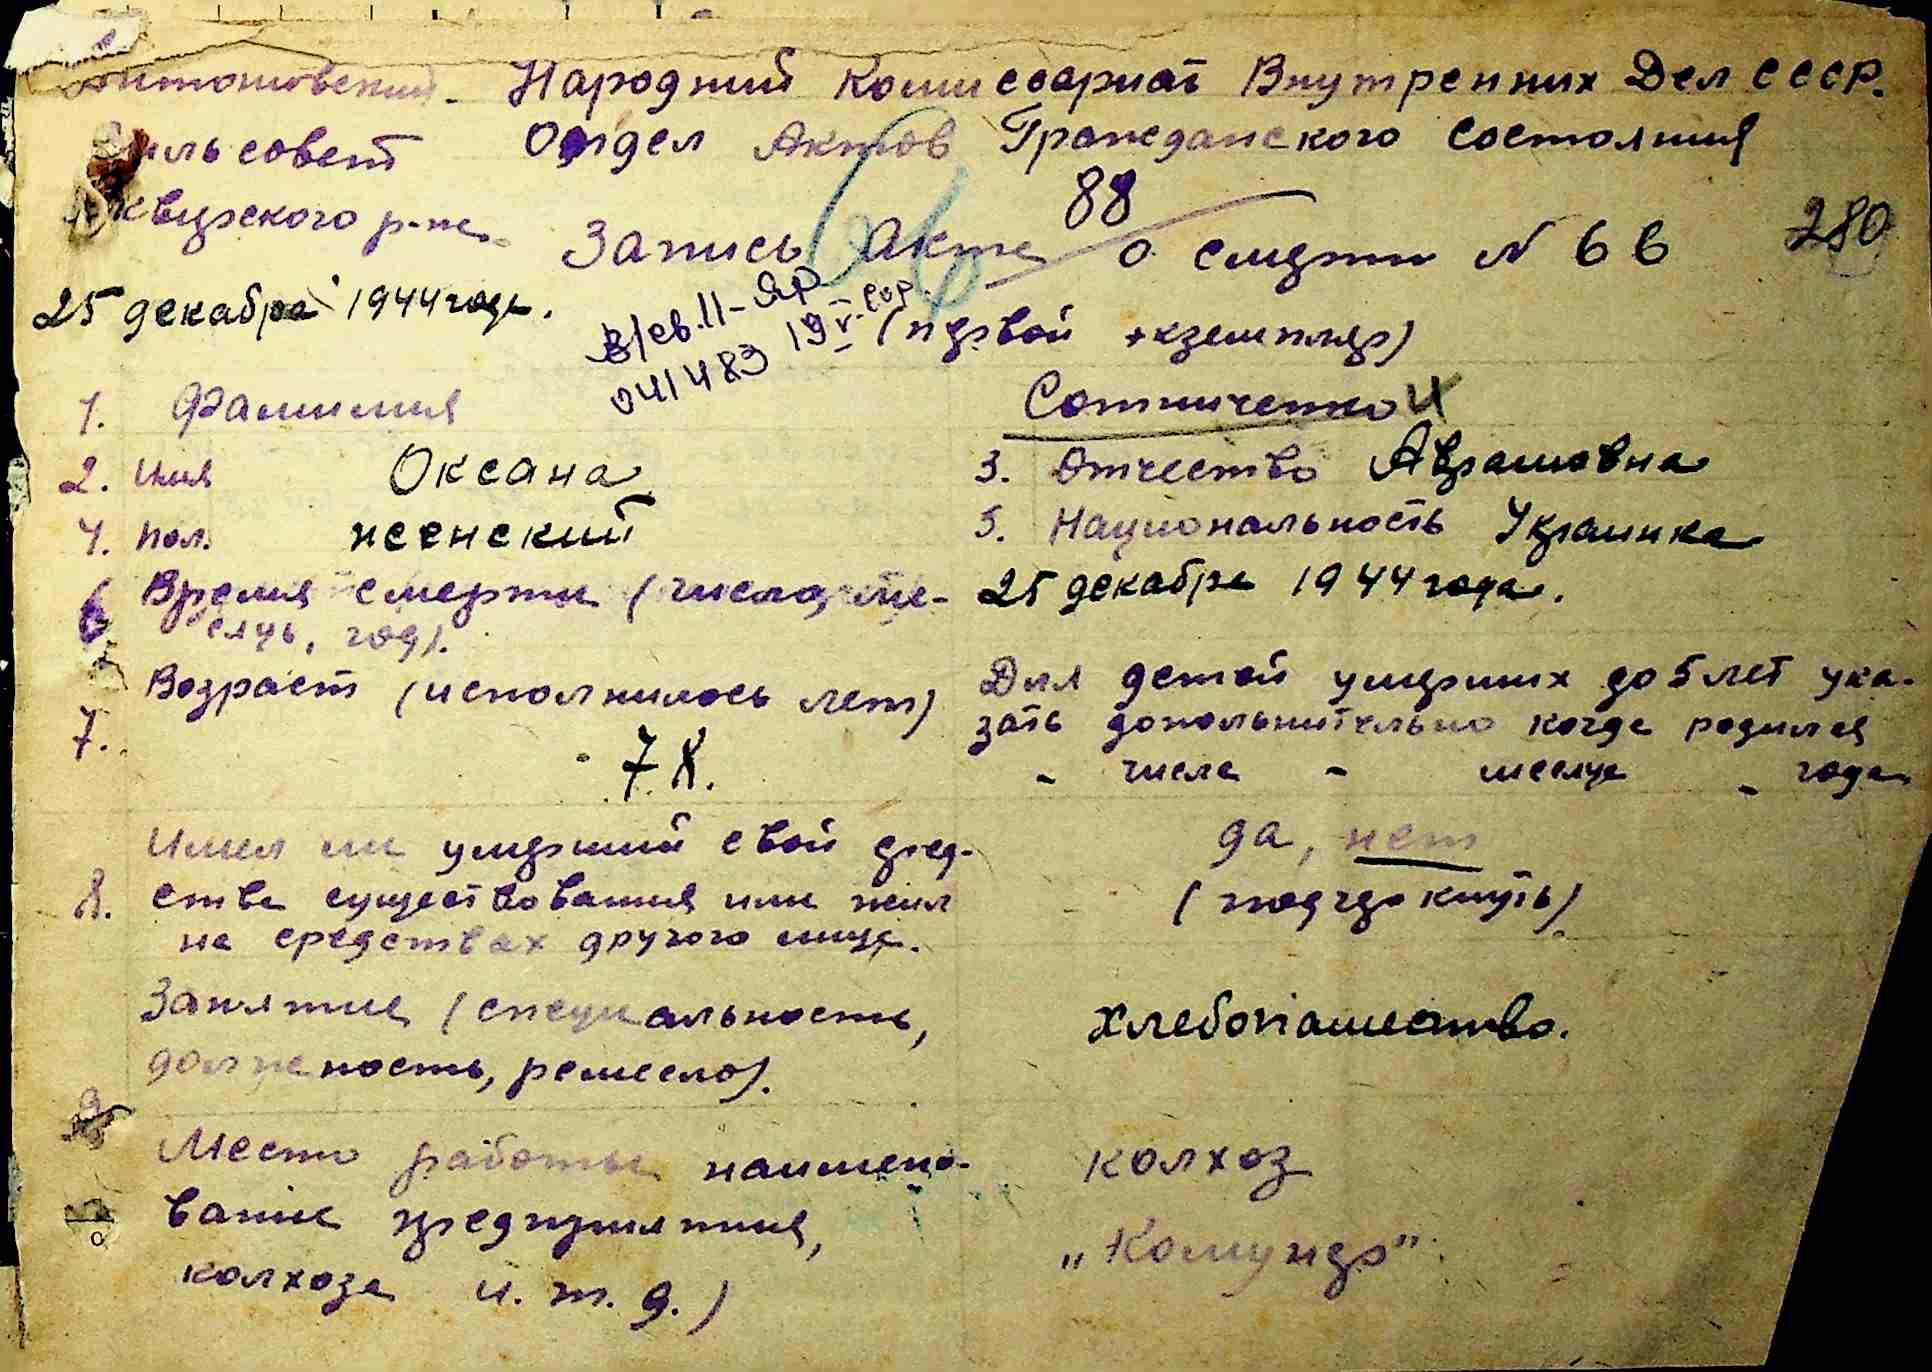 Антоновский Народний Комисариат Внутренних Дел СССР.
сильсовет Отдел Актов Гражданского Состояния
Сквирского р-на 88
Запись Акта о смерти N 66 280
25 декабря 1944 года.
в/св. II-ЯР
041483 19
(первой экземпляр)
1. Фамилия Сотниченко
2. Имя Оксана 3. Отчество Аврамовна
4. Пол. женский 5. Национальность Украинка
6 Время смерти (число, ме- 25 декабря 1944 года.
сяць, год).
7. Возраст (исполнилось лет) Для детей умерших до 5 лет ука-
зать дополнительно когда родился
7 X. - числа - месяца - года
8. Имел ли умерший свои сред- да, нет
ства существования или жил (подчеркнуть)
на средствах другого лица.
9 Занятие (специальность, хлебопашество.
должность, ремесло).
Место работы наимено- колхоз
вание предприятия, „Комунар"
колхоза и. т. д.)